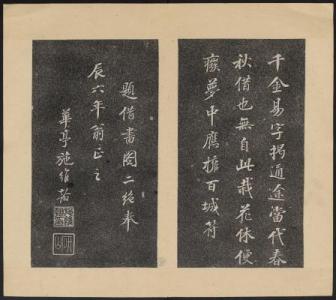 千金易字揭通途當代春
秋借也無自此栽花休便
癡夢中應擔百城符
題借書圖二絕奉
辰六年翁正之
華亭施維